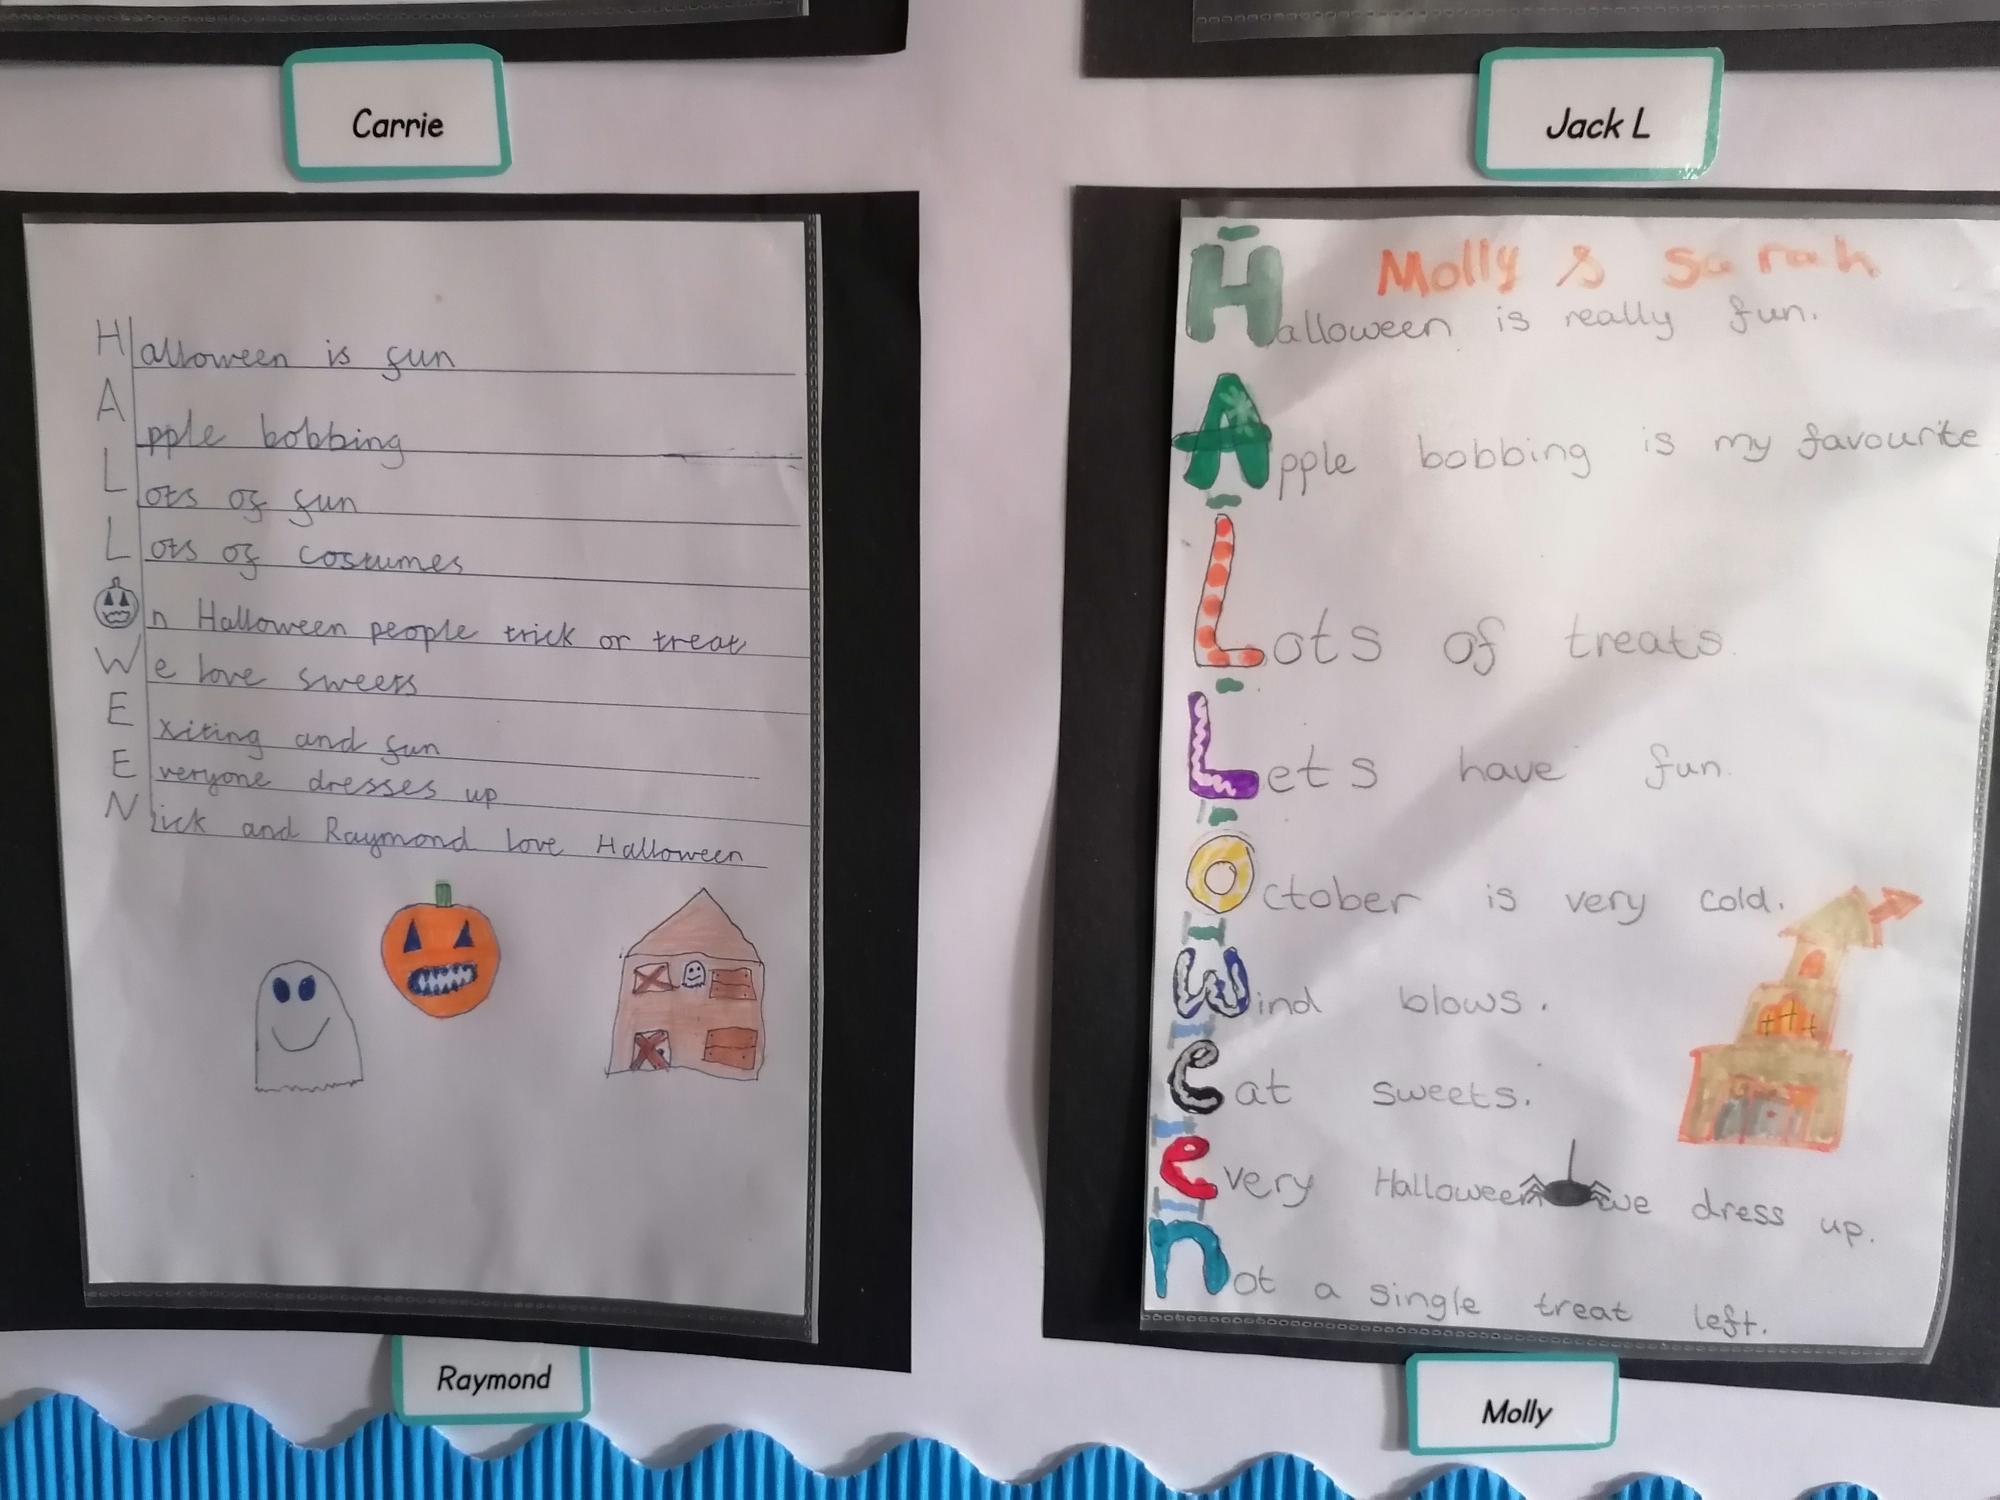 Carrie
Halloween is fun
Apple bobbing
Lots of fun
Lots of costumes
On Halloween people trick or treat
We love sweets
Exiting and fun
Everyone dresses up
Nick and Raymond love Halloween
Raymond
Jack L
Molly & Sarah
Halloween is really fun.
Apple bobbing is my favourite
Lots of treats.
Lets have fun.
October is very cold.
Wind blows.
eat sweets.
every Halloween we dress up.
not a single treat left.
Molly